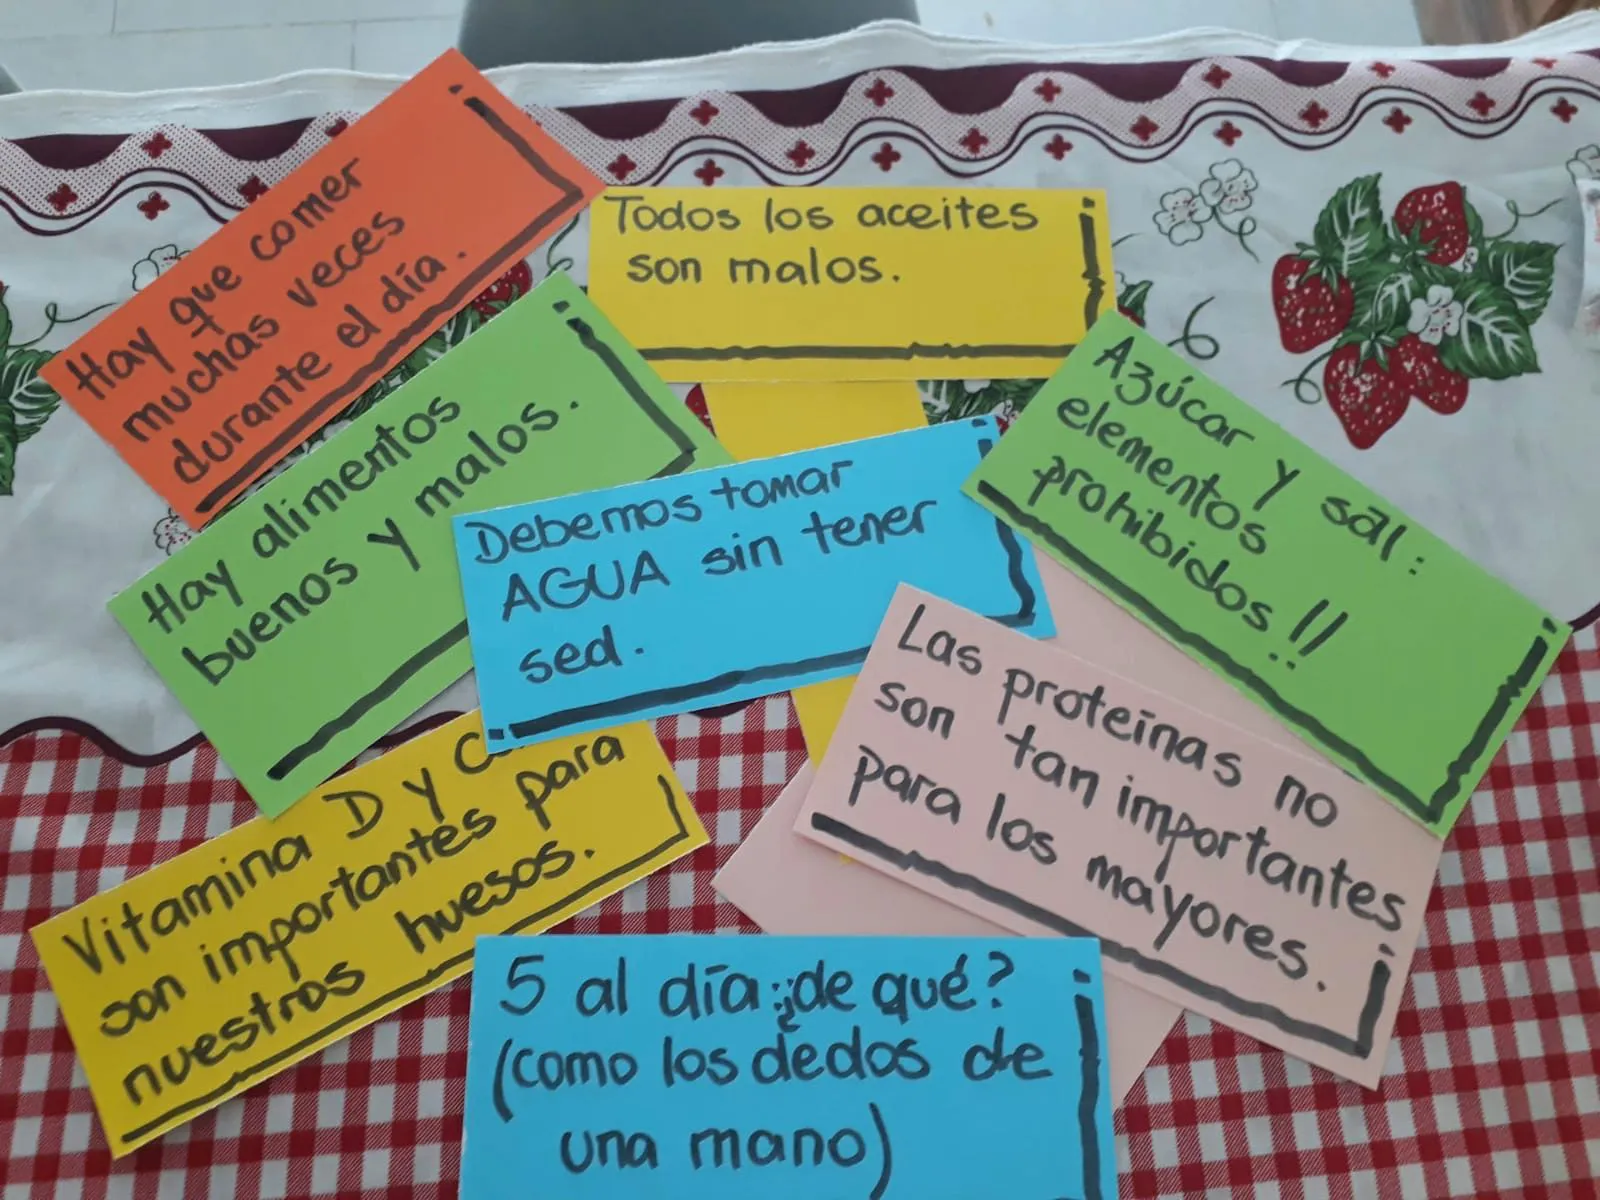 Hay que comer
muchas veces
durante el día.
Todos los aceites
son malos.
Hay alimentos
buenos y malos.
Debemos tomar
AGUA sin tener
sed.
Azúcar y sal:
elementos
prohibidos!!
Las proteínas no
son tan importantes
para los mayores.
Vitamina D y
son importantes para
nuestros huesos.
5 al día: ¿de qué?
(como los dedos de
una mano)